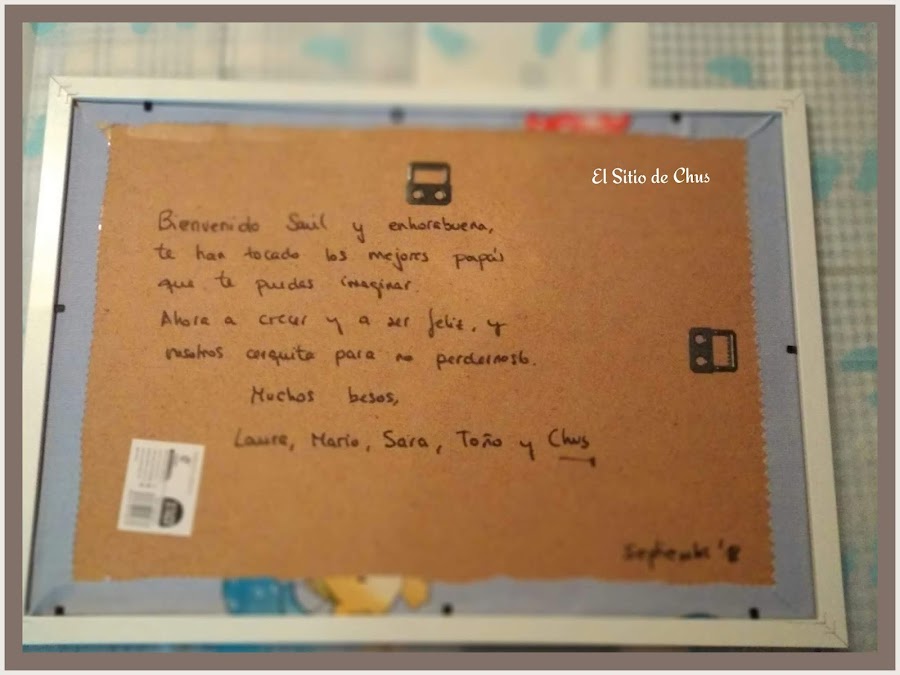 El Sitio de Chus
Bienvenido Saúl y enhorabuena,
te han tocado los mejores papás
que te puedas imaginar.
Ahora a crecer y a ser feliz, y
nosotros cerquita para no perdernoslo.
Muchos besos,
Laura, Mario, Sara, Toño y Chus
Septiembre '18